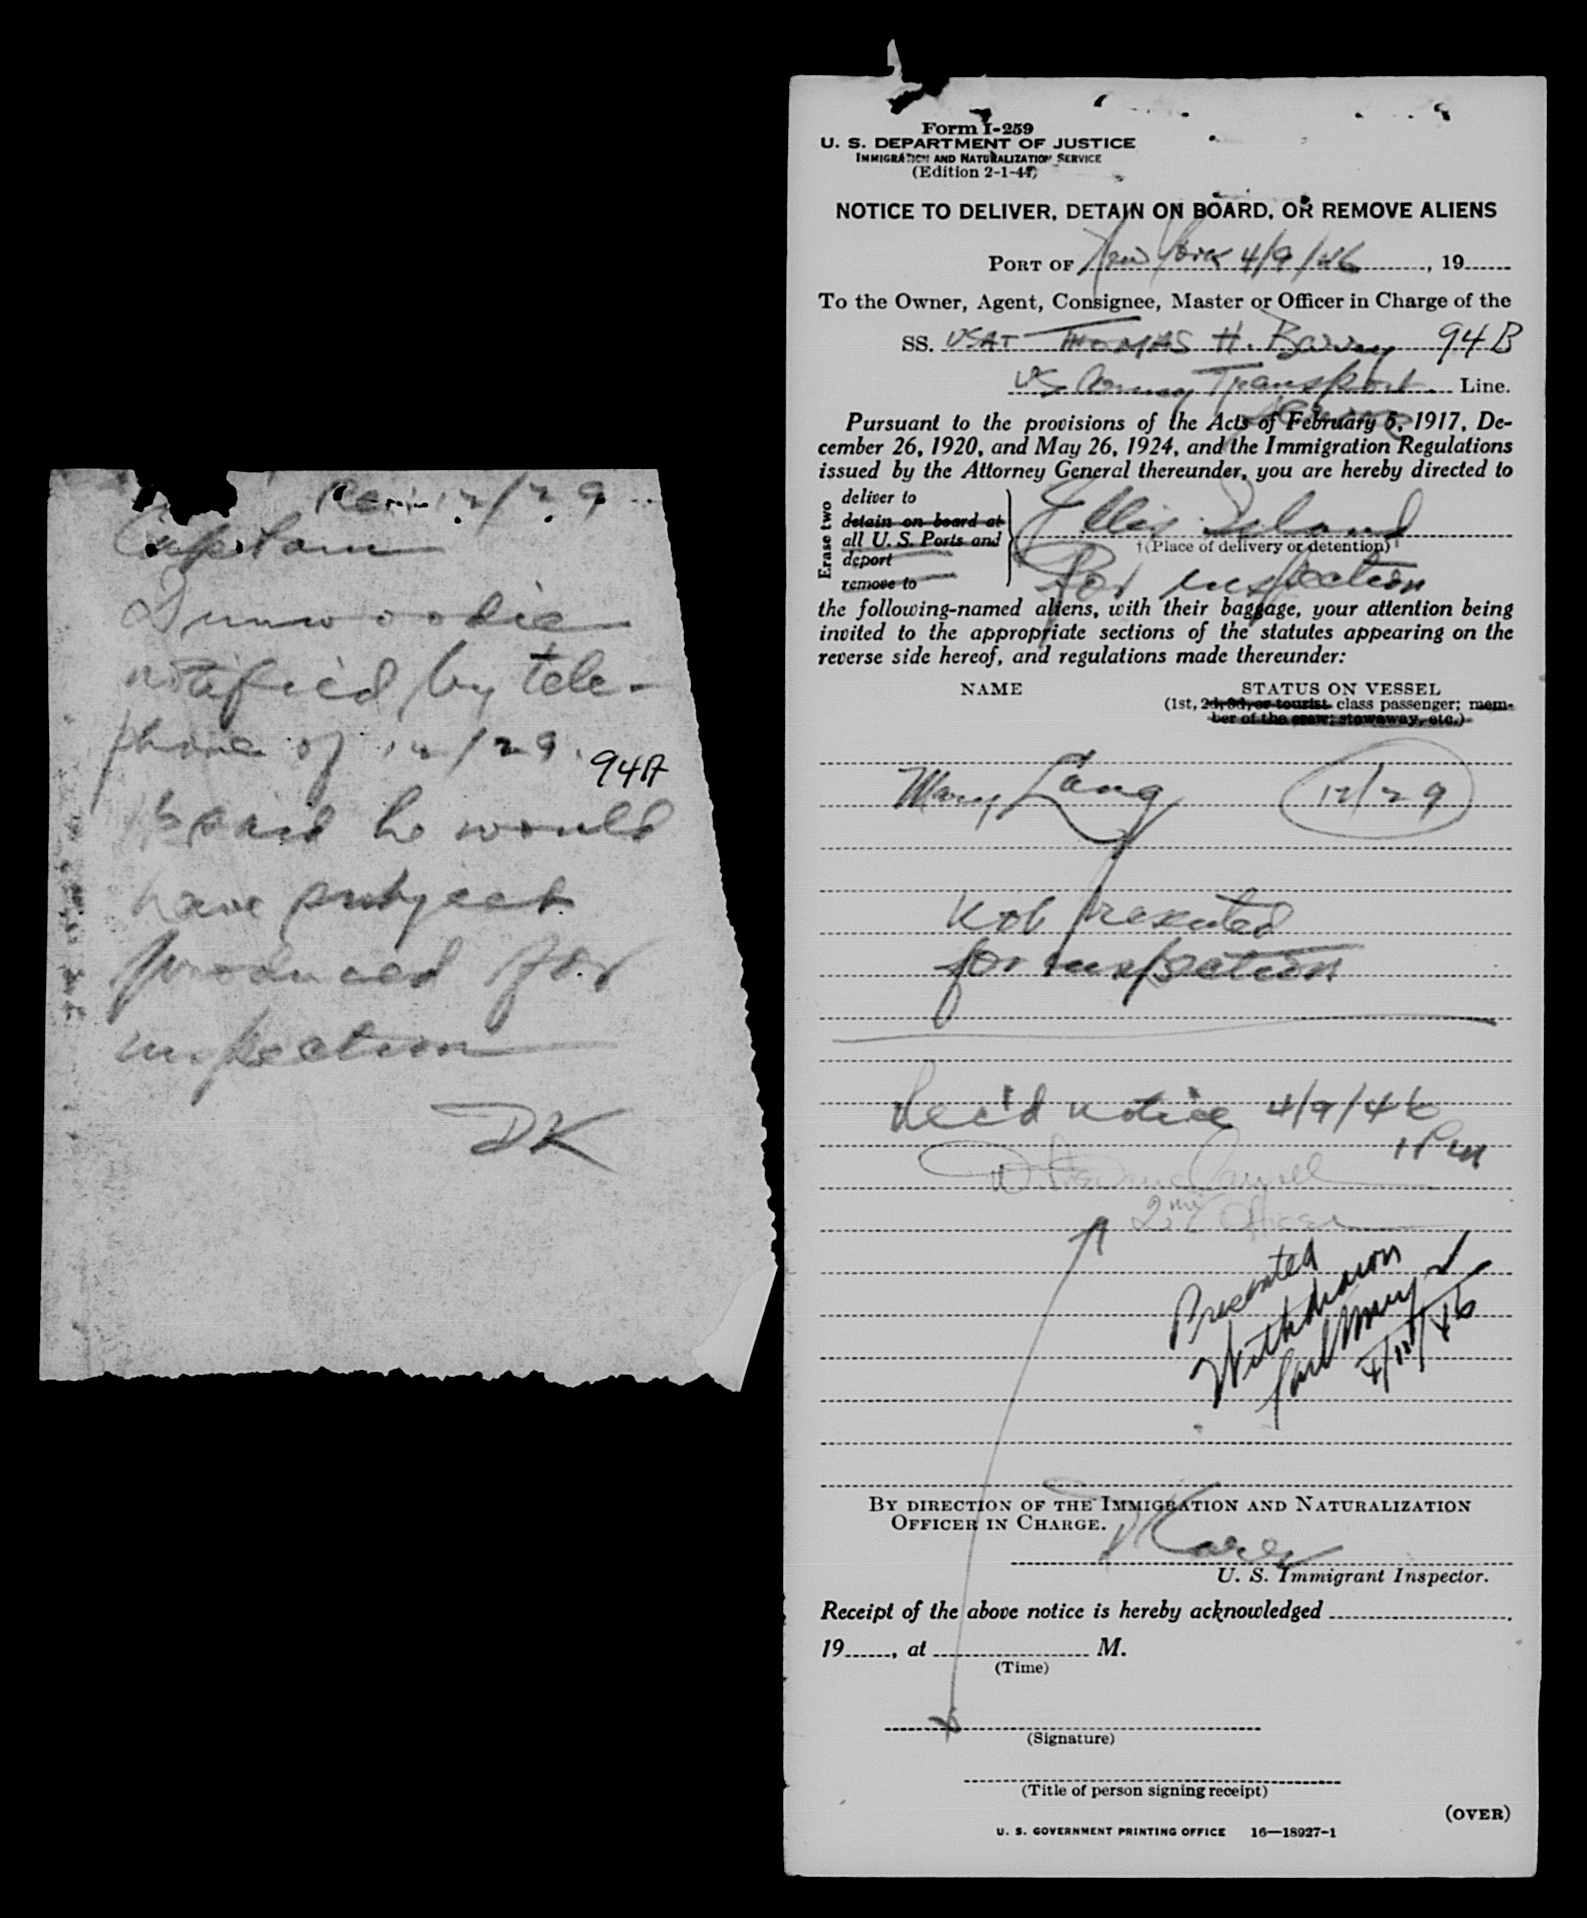 Re: 12/29
Captain
Dunwoodie
notified by tele-
phone of 12/29.
94A
& said he would
have subject
produced for
inspection
DK
Form I-259
U. S. DEPARTMENT OF JUSTICE
IMMIGRATION AND NATURALIZATION SERVICE
(Edition 2-1-4
NOTICE TO DELIVER, DETAIN ON BOARD, OR REMOVE ALIENS
PORT OF New York 4/9/46, 19
To the Owner, Agent, Consignee, Master or Officer in Charge of the
SS. USAT THOMAS H. Barry 94B
US Army Transport Line.
Service
Pursuant to the provisions of the Acts of February 5, 1917, De-
cember 26, 1920, and May 26, 1924, and the Immigration Regulations
issued by the Attorney General thereunder, you are hereby directed to
Erase two
deliver to
detain on board at
all U. S. Ports and
deport
remove to
Ellis Island
†(Place of delivery or detention)
For inspection
the following-named aliens, with their baggage, your attention being
invited to the appropriate sections of the statutes appearing on the
reverse side hereof, and regulations made thereunder:
NAME STATUS ON VESSEL
(1st, 2d, 3d, or tourist class passenger; mem-
ber of the crew; stowaway, etc.)
Mary Lang 12/29
Not presented
for inspection
Rec'd notice 4/9/46
1 PM
2nd Officer
Presented
Withdrawn
4/12/46
BY DIRECTION OF THE IMMIGRATION AND NATURALIZATION
OFFICER IN CHARGE.
U. S. Immigrant Inspector.
Receipt of the above notice is hereby acknowledged
19, at M.
(Time)
(Signature)
(Title of person signing receipt)
(OVER)
U. S. GOVERNMENT PRINTING OFFICE 16—18927-1